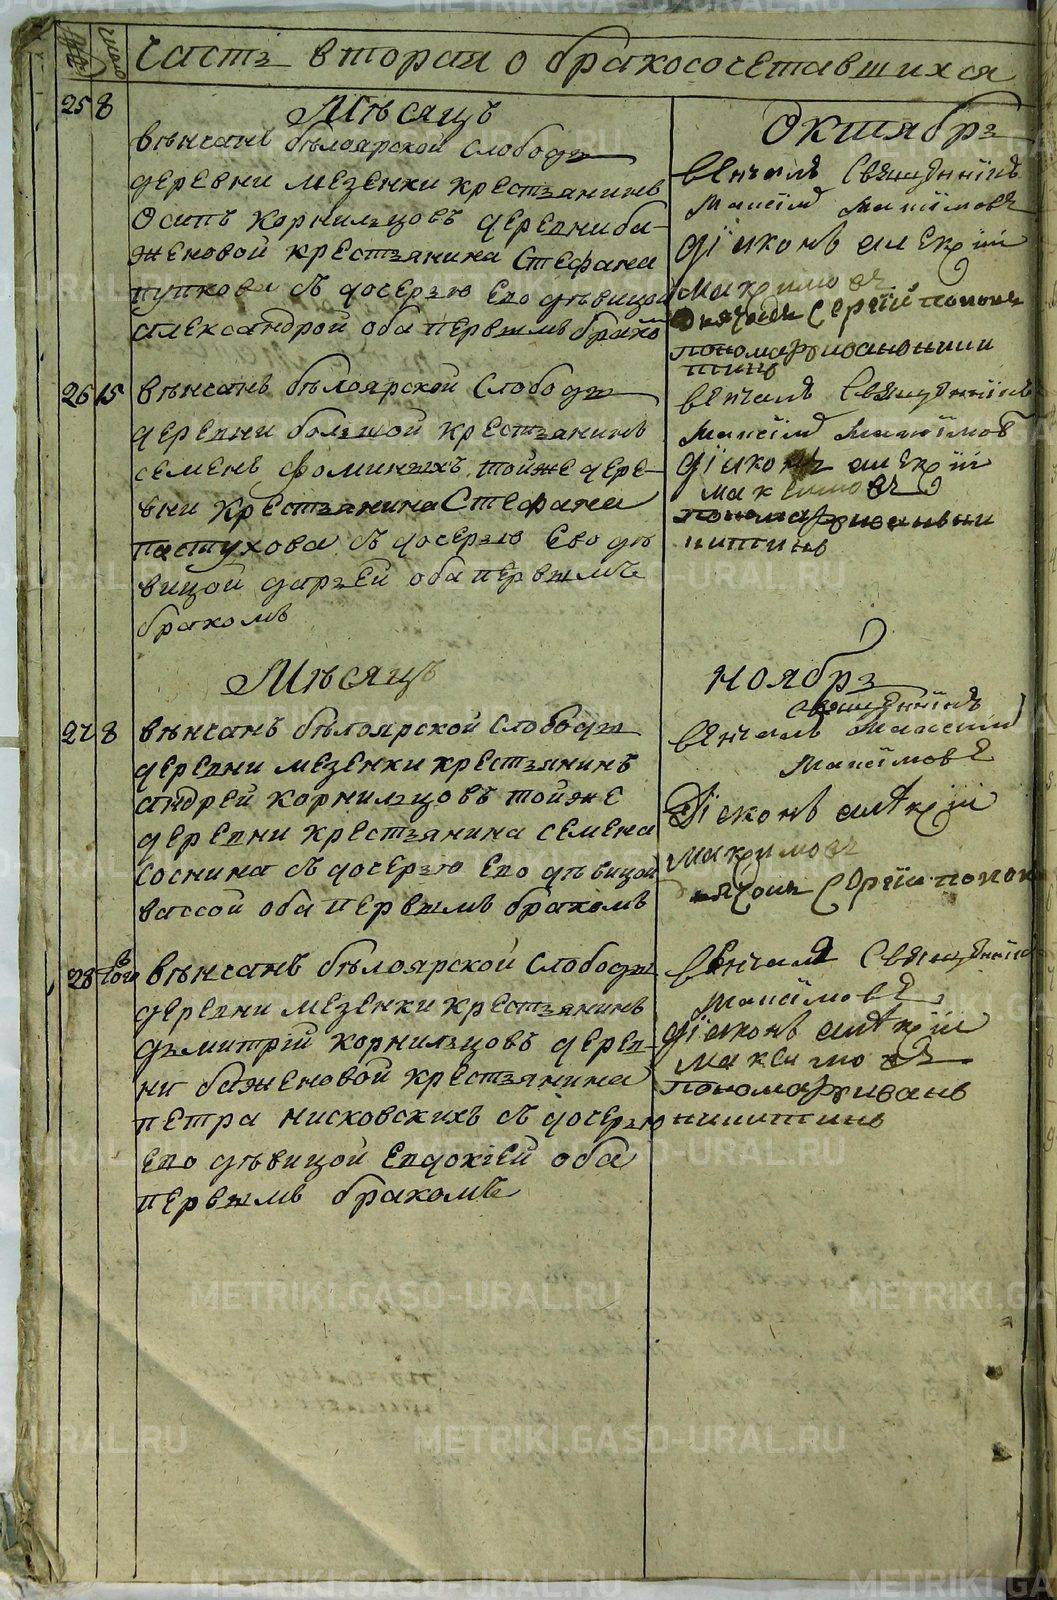 число
часть вторая о бракосочетавшихся
Мѣсяцъ Октябрь
25 8 вѣнчанъ бѣлоярской слободы
деревни мезенки крестьянинъ
Осипъ корнильцовъ деревни ба-
женовой крестьянина Стефана
пупкова съ дочерью ево дѣвицой
александрой оба первымъ бракомъ
венчалъ Священникъ
Максимъ Максимовъ
діаконъ алекѣй
макѣимовъ
дьячокъ Сергій поповъ
пономарь иванъ ники
тинъ
26 15 вѣнчанъ бѣлоярской Слободы
деревни большой крестьянинъ
семенъ фоминыхъ тойже дере-
вни крестьянина Стефана
пастухова съ дочерью Ево дѣ
вицой дарьей оба первымъ
бракомъ
венчалъ Священникъ
Максимъ Максимовъ
діаконъ алекѣій
макѣимовъ
пономарь иванъ ни
китинъ
Мѣсяцъ ноябрь
27 8 вѣнчанъ бѣлоярской слободы
деревни мезенки крестьянинъ
андрей корнильцовъ тойже
деревни крестьянина семена
соснина съ дочерью ево дѣвицой
вассой оба первымъ бракомъ
священникъ
венчалъ Максимъ
Максимовъ
Діаконъ алекѣій
макѣимовъ
дьячокъ Сергій попов
28 тогож вѣнчанъ бѣлоярской слободы
деревни мезенки крестьянинъ
дъмитрій корнильцовъ дерев-
ни баженовой крестьянина
петра нисковскихъ съ дочерью
ево дѣвицой Евдокіей оба
первымъ бракомъ
венчалъ Священникъ
Максимовъ
діаконъ алекѣій
макѣимовъ
пономарь иванъ
никитинъ
METRIKI.GASO-URAL.RU